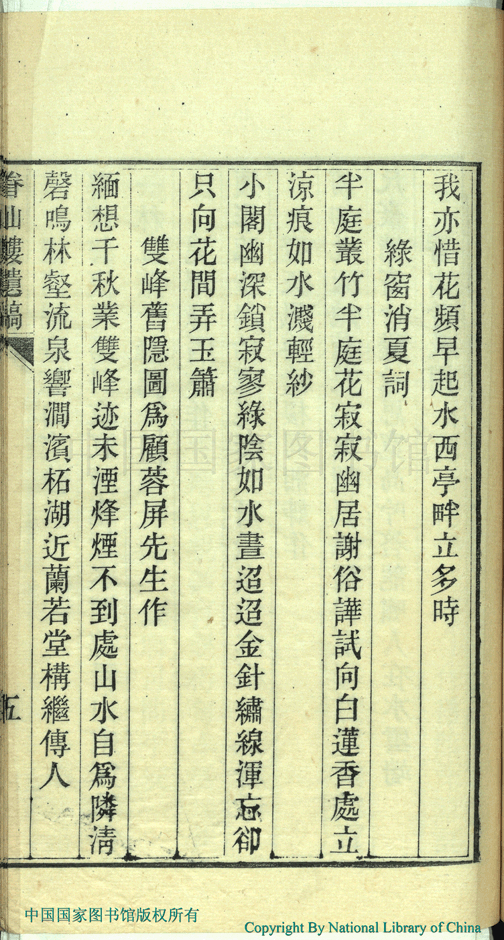 我亦惜花頻早起水西亭畔立多時
綠窗消夏詞
半庭叢竹半庭花寂寂幽居謝俗譁試向白蓮香處立
涼痕如水濺輕紗
小閣幽深鎖寂寥綠陰如水晝迢迢金針繡線渾忘卻
只向花間弄玉簫
雙峰舊隱圖爲顧蓉屏先生作
緬想千秋業雙峰迹未湮烽煙不到處山水自爲隣淸
磬鳴林壑流泉響澗濱柘湖近蘭若堂構繼傳人
眷山樓遺稿
五
中国国家图书馆
中国国家图书馆版权所有
Copyright By National Library of China